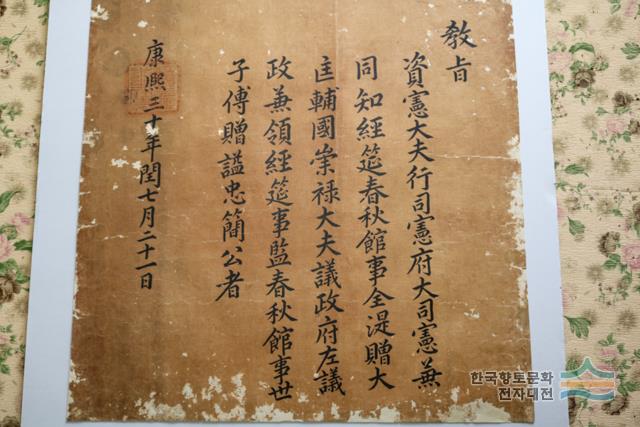 教旨
資憲大夫行司憲府大司憲兼
同知經筵春秋館事全湜贈大
匡輔國崇禄大夫議政府左議
政兼領經筵事監春秋館事世
子傅贈謚忠簡公者
康熙三十年閏七月二十一日
한국향토문화
전자대전